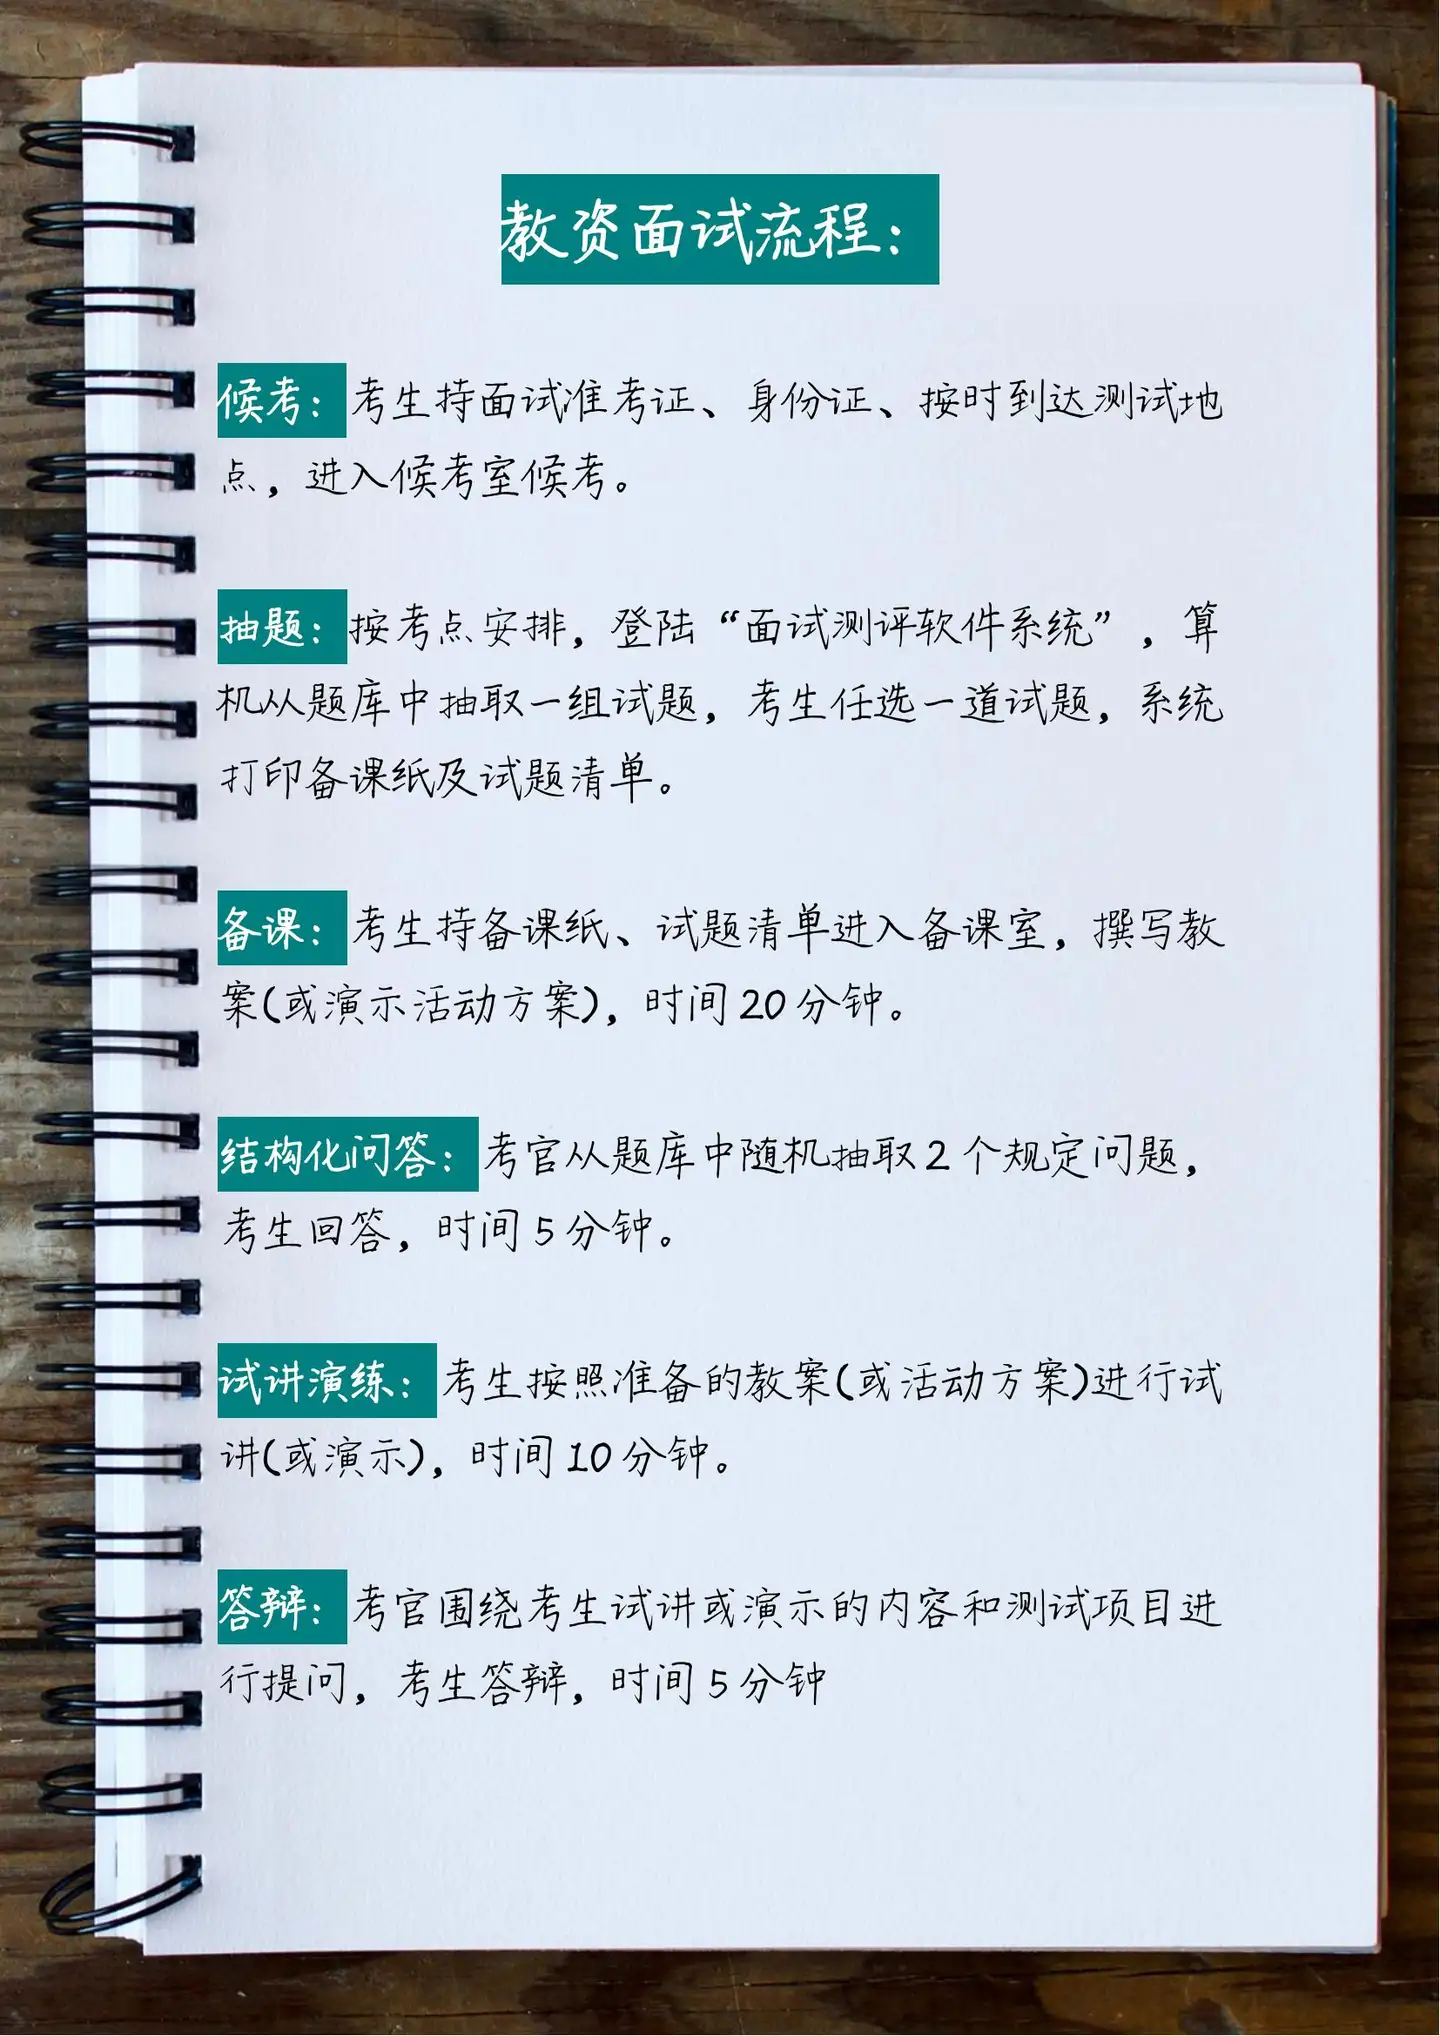 教资面试流程：
候考：考生持面试准考证、身份证、按时到达测试地
点，进入候考室候考。
抽题：按考点安排，登陆“面试测评软件系统”，算
机从题库中抽取一组试题，考生任选一道试题，系统
打印备课纸及试题清单。
备课：考生持备课纸、试题清单进入备课室，撰写教
案(或演示活动方案)，时间20分钟。
结构化问答：考官从题库中随机抽取2个规定问题，
考生回答，时间5分钟。
试讲演练：考生按照准备的教案(或活动方案)进行试
讲(或演示)，时间10分钟。
答辩：考官围绕考生试讲或演示的内容和测试项目进
行提问，考生答辩，时间5分钟